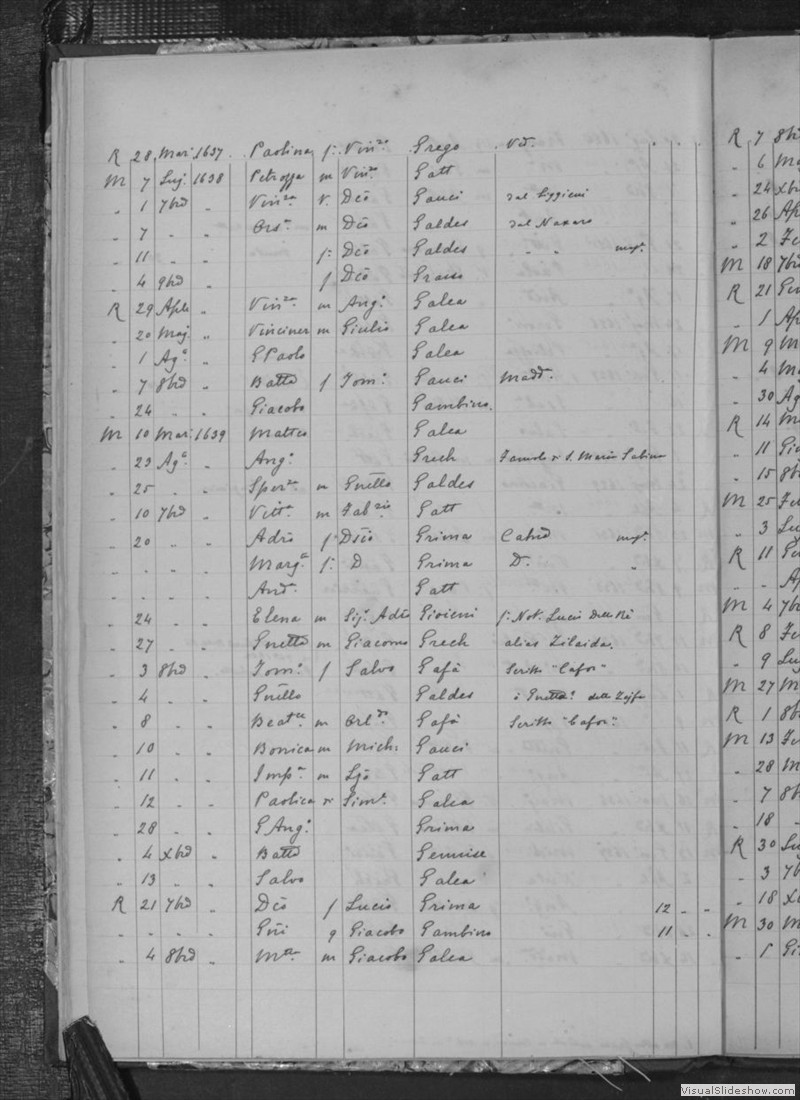 R 28 Mar. 1637 Paolina f: Vin:za Grego Vd.
M 7 Lug. 1638 Petroffa m Vin:zo Gatt
" 1 7bre " Vin:za v. Dco Gauci dal Siggieui
" 7 " " Ors:a m Dco Galdes dal Naxaro
" 11 " " f: Dco Galdes " "
" 4 9bre " f Dco Grasso
R 29 Aple " Vin:za m Ang:o Galea
" 20 Mag. " Vinciner m Giulio Galea
" 1 Ag:o " GPaolo Galea
" 7 8bre " Batta f Tom:o Gauci Madd.
" 24 " " Giacobo Gambino.
M 10 Mar. 1639 Matteo Galea
" 23 Ag:o " Ang:o Grech
" 25 " " Sper:za m Gnello Galdes
" 10 7bre " Vitt:a m Fab:zio Gatt
" 20 " " Adro f: Dco Grima
" " " " Marg:ta f: D Grima D. "
And:a Gatt
" 24 " " Elena m Sig. Adro f: Not. Lucio
" 27 " " m Giacomo Grech alias Zilaida.
" 3 8bre " Tom:o f Salvo Gafà Scritto "Cafor"
" 4 " " Gnello Galdes
" 8 " " Beat:ce m Orl:do Gafà Scritto "Cafor".
" 10 " " Bonica m Mich: Gauci
" 11 " " Imp:a m Lzo Gatt
" 12 " " Paolica v. Sim:e Galea
" 28 " " GAng:o Grima
" 4 Xbre " Batta
" 13 " " Salvo Galea
R 21 7bre " Dco f Lucio Grima 12 " "
" " " " g Giacobo Gambino 11 " "
" 4 8bre " m Giacobo Galea
R 7 8b
" 6 Ma
" 24 Xb
" 26 Ap
" 2 Fe
M 18 7b
R 21 Ge
" 1 Ap
M 9 M
" 4 Ma
" 30 Ag
R 14 M
" 11 Gi
" 15 8b
M 25 Fe
" 3 Lu
R 11 Ge
" " Ap
M 4 7b
R 8 Fe
" 9 Lu
M 27 M
R 1 8b
M 13 Fe
" 28 M
" 7 8b
" 18 "
R 30 Lu
" 3 7b
" 18 Xb
M 30 M
" 1 Gi
VisualSlideshow.com